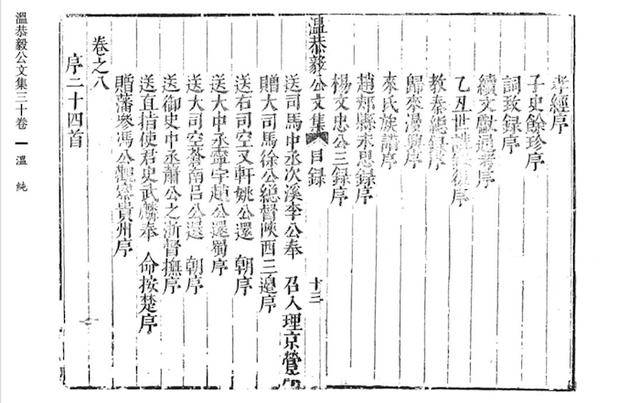 孝經序
子史餘珍序
詞致録序
續文獻通考序
乙丑世講序
教秦總録序
歸來漫興序
來氏族譜序
趙郟縣永思録序
楊文忠公三録序
溫恭毅公文集 目録 十三
送司馬中丞次溪李公奉 召入理京營
贈大司馬徐公總督陝西三邊序
送右司空又軒姚公還 朝序
送大中丞霊宇趙公還蜀序
送大司空南吕公還 朝序
送御史中丞蕭公之浙督撫序
送直指使君史武麟奉 命按楚序
贈藩參馮公觀察貴州序
卷之八
序二十四首
溫恭毅公文集三十卷 一 溫 純